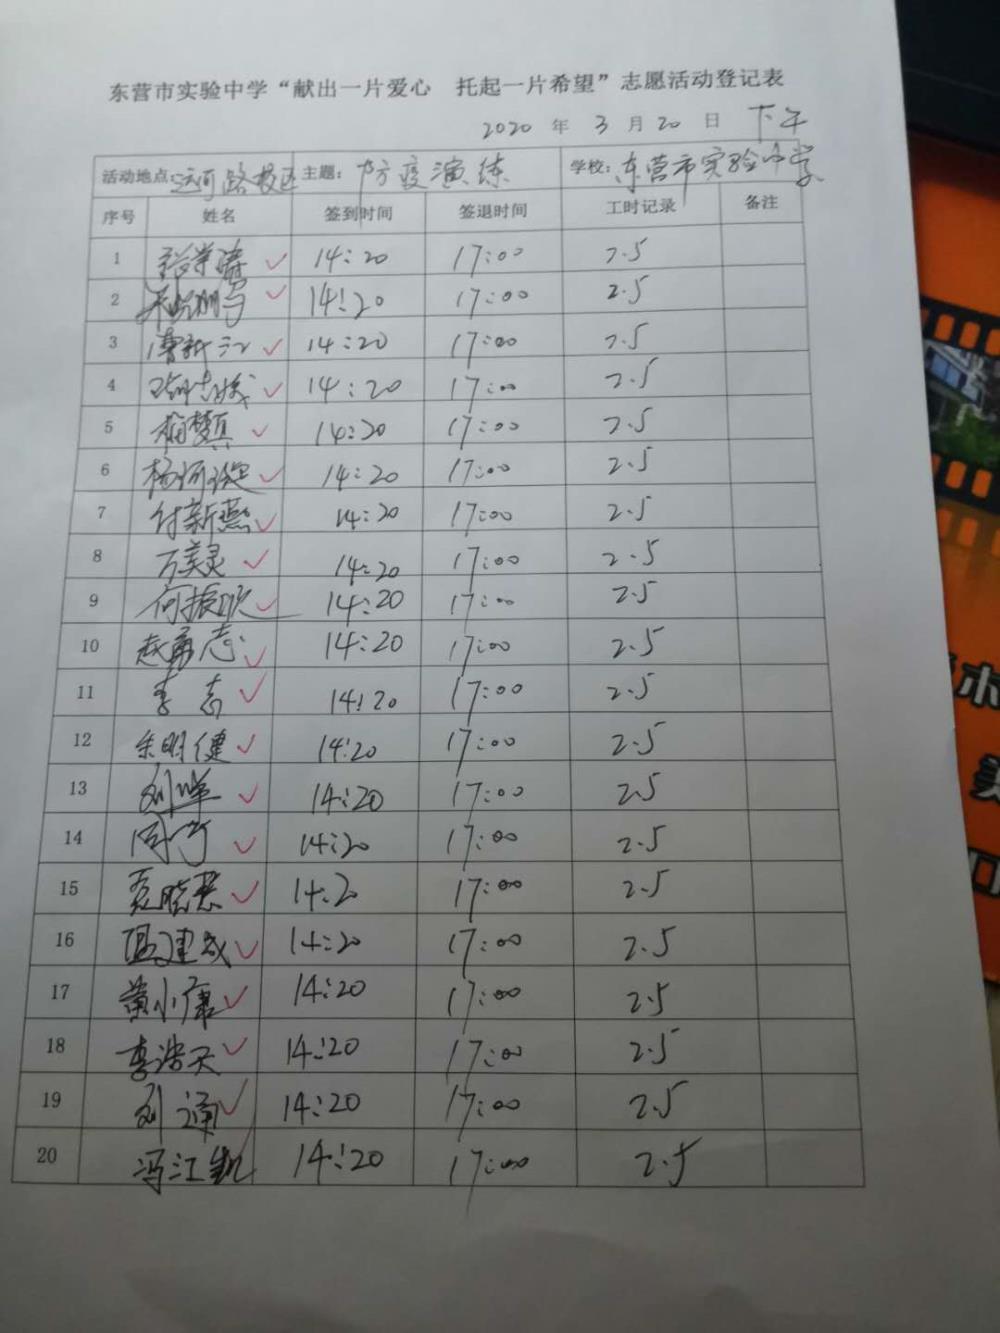 东营市实验中学“献出一片爱心 托起一片希望”志愿活动登记表
2020 年 3 月 20 日 下午
活动地点:运河路校区 主题: 防疫演练 学校: 东营市实验中学
序号 姓名 签到时间 签退时间 工时记录 备注
1 14:20 17:00 2.5
2 14:20 17:00 2.5
3 曹新江 14:20 17:00 2.5
4 14:20 17:00 2.5
5 14:20 17:00 2.5
6 14:20 17:00 2.5
7 付新燕 14:20 17:00 2.5
8 万美灵 14:20 17:00 2.5
9 何振欣 14:20 17:00 2.5
10 赵勇志 14:20 17:00 2.5
11 李志 14:20 17:00 2.5
12 朱明健 14:20 17:00 2.5
13 刘峰 14:20 17:00 2.5
14 14:20 17:00 2.5
15 14:20 17:00 2.5
16 温建成 14:20 17:00 2.5
17 黄小康 14:20 17:00 2.5
18 李浩天 14:20 17:00 2.5
19 刘通 14:20 17:00 2.5
20 冯江凯 14:20 17:00 2.5
术
美